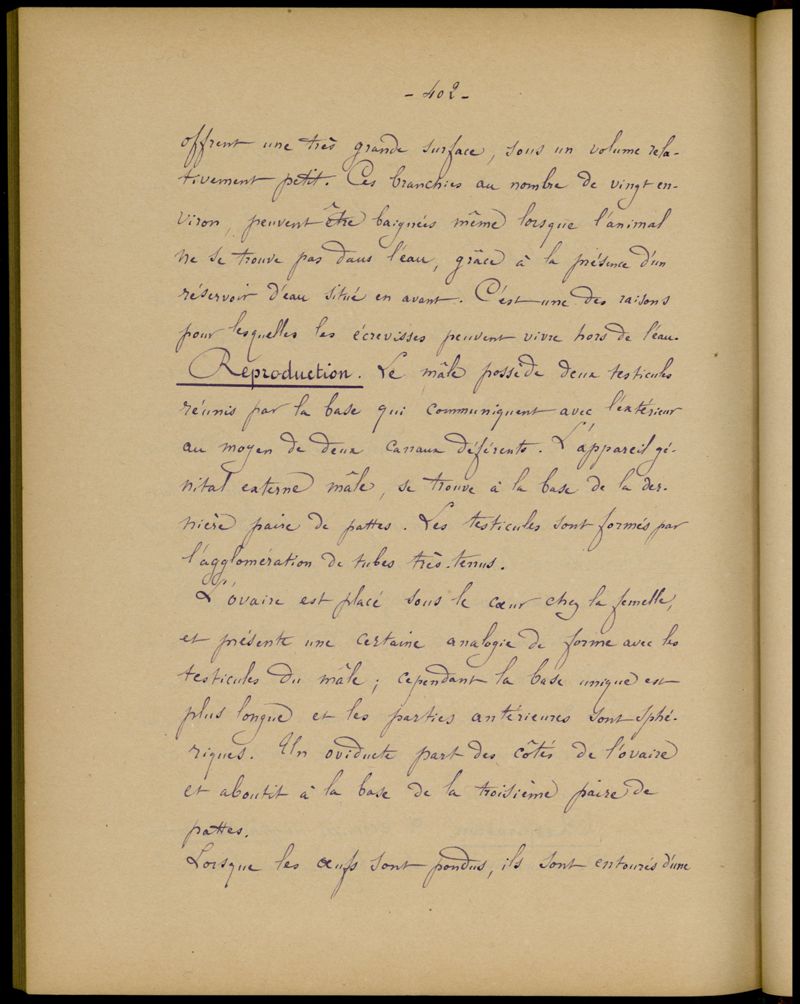 - 402 -
offrent une très grande surface, sous un volume rela-
tivement petit. Ces branchies au nombre de vingt en-
viron, peuvent être baignées même lorsque l'animal
ne se trouve pas dans l'eau, grâce à la présence d'un
réservoir d'eau situé en avant. C'est une des raisons
pour lesquelles les écrevisses peuvent vivre hors de l'eau.
Reproduction. Le mâle possède deux testicules
réunis par la base qui communiquent avec l'extérieur
au moyen de deux canaux déférents. L'appareil gé-
nital externe mâle, se trouve à la base de la der-
nière paire de pattes. Les testicules sont formés par
l'agglomération de tubes très-tenus.
L'ovaire est placé sous le cœur chez la femelle,
et présente une certaine analogie de forme avec les
testicules du mâle; cependant la base unique est
plus longue et les parties antérieures sont sphé-
riques. Un oviducte part des côtés de l'ovaire
et aboutit à la base de la troisième paire de
pattes.
Lorsque les œufs sont pondus, ils sont entourés d'une